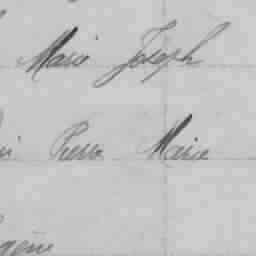 Marie Joseph
Pierre Marie